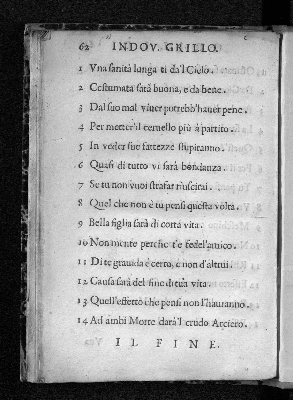 62 INDOV. GRILLO.
1 Vna sanità lunga ti dà'l Cielo.
2 Costumata sarà buona, e da bene.
3 Dal suo mal viuer potrebb'hauer pene.
4 Per metter'il ceruello più à partito.
5 In veder sue fattezze stupiranno.
6 Quasi di tutto vi sarà bondanza.
7 Se tu non vuoi strafar riuscirai.
8 Quel che non è tu pensi questa volta.
9 Bella figlia sarà di corta vita.
10 Non mente perche t'è fedel'amico.
11 Di te grauida è certo, e non d'altrui.
12 Causa sarà del fine di tua vita.
13 Quell'effetto che pensi non l'hauranno.
14 Ad ambi Morte darà'l crudo Arciero.
IL FINE.